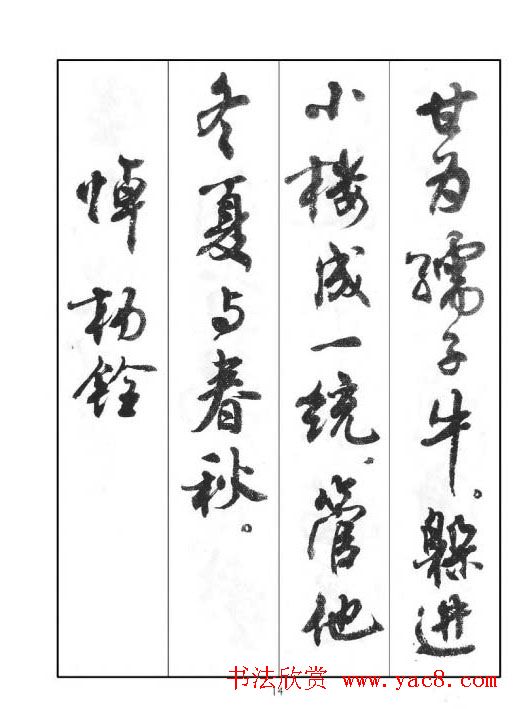 甘为孺子牛。躲进
小楼成一统，管他
冬夏与春秋。
悼杨铨
书法欣赏 www.yac8.com
14